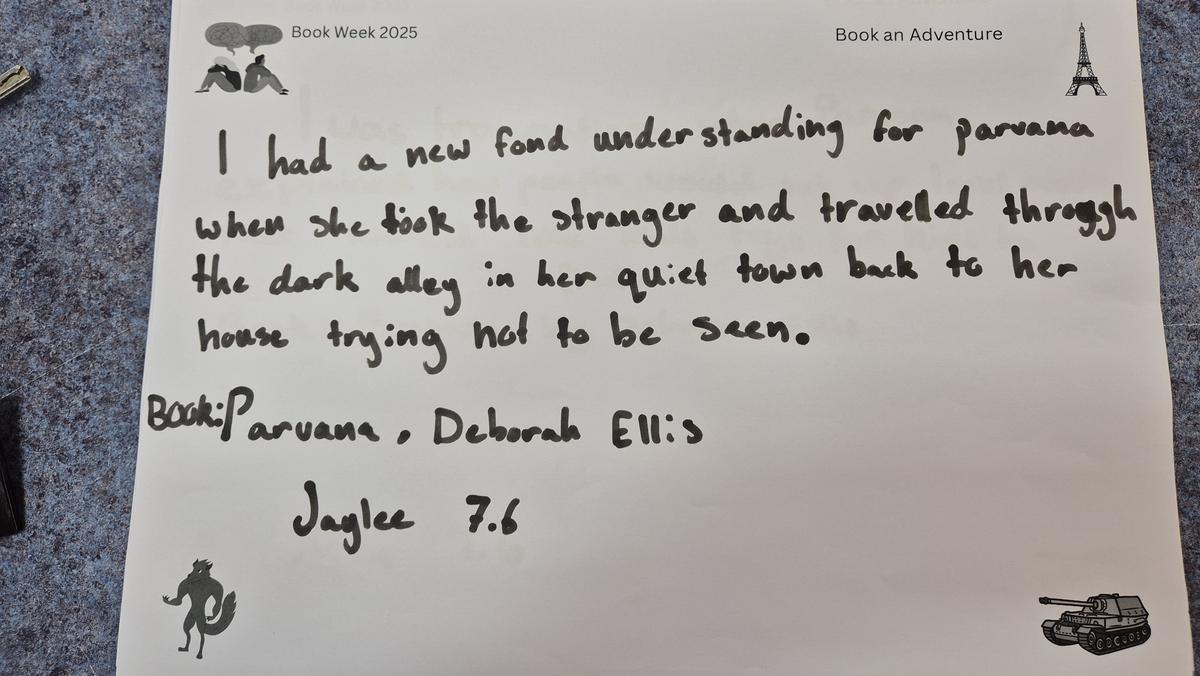 Book Week 2025
Book an Adventure
I had a new fond understanding for parvana
when she took the stranger and travelled through
the dark alley in her quiet town back to her
house trying not to be seen.
Book: Parvana, Deborah Ellis
Jaylee 7.6